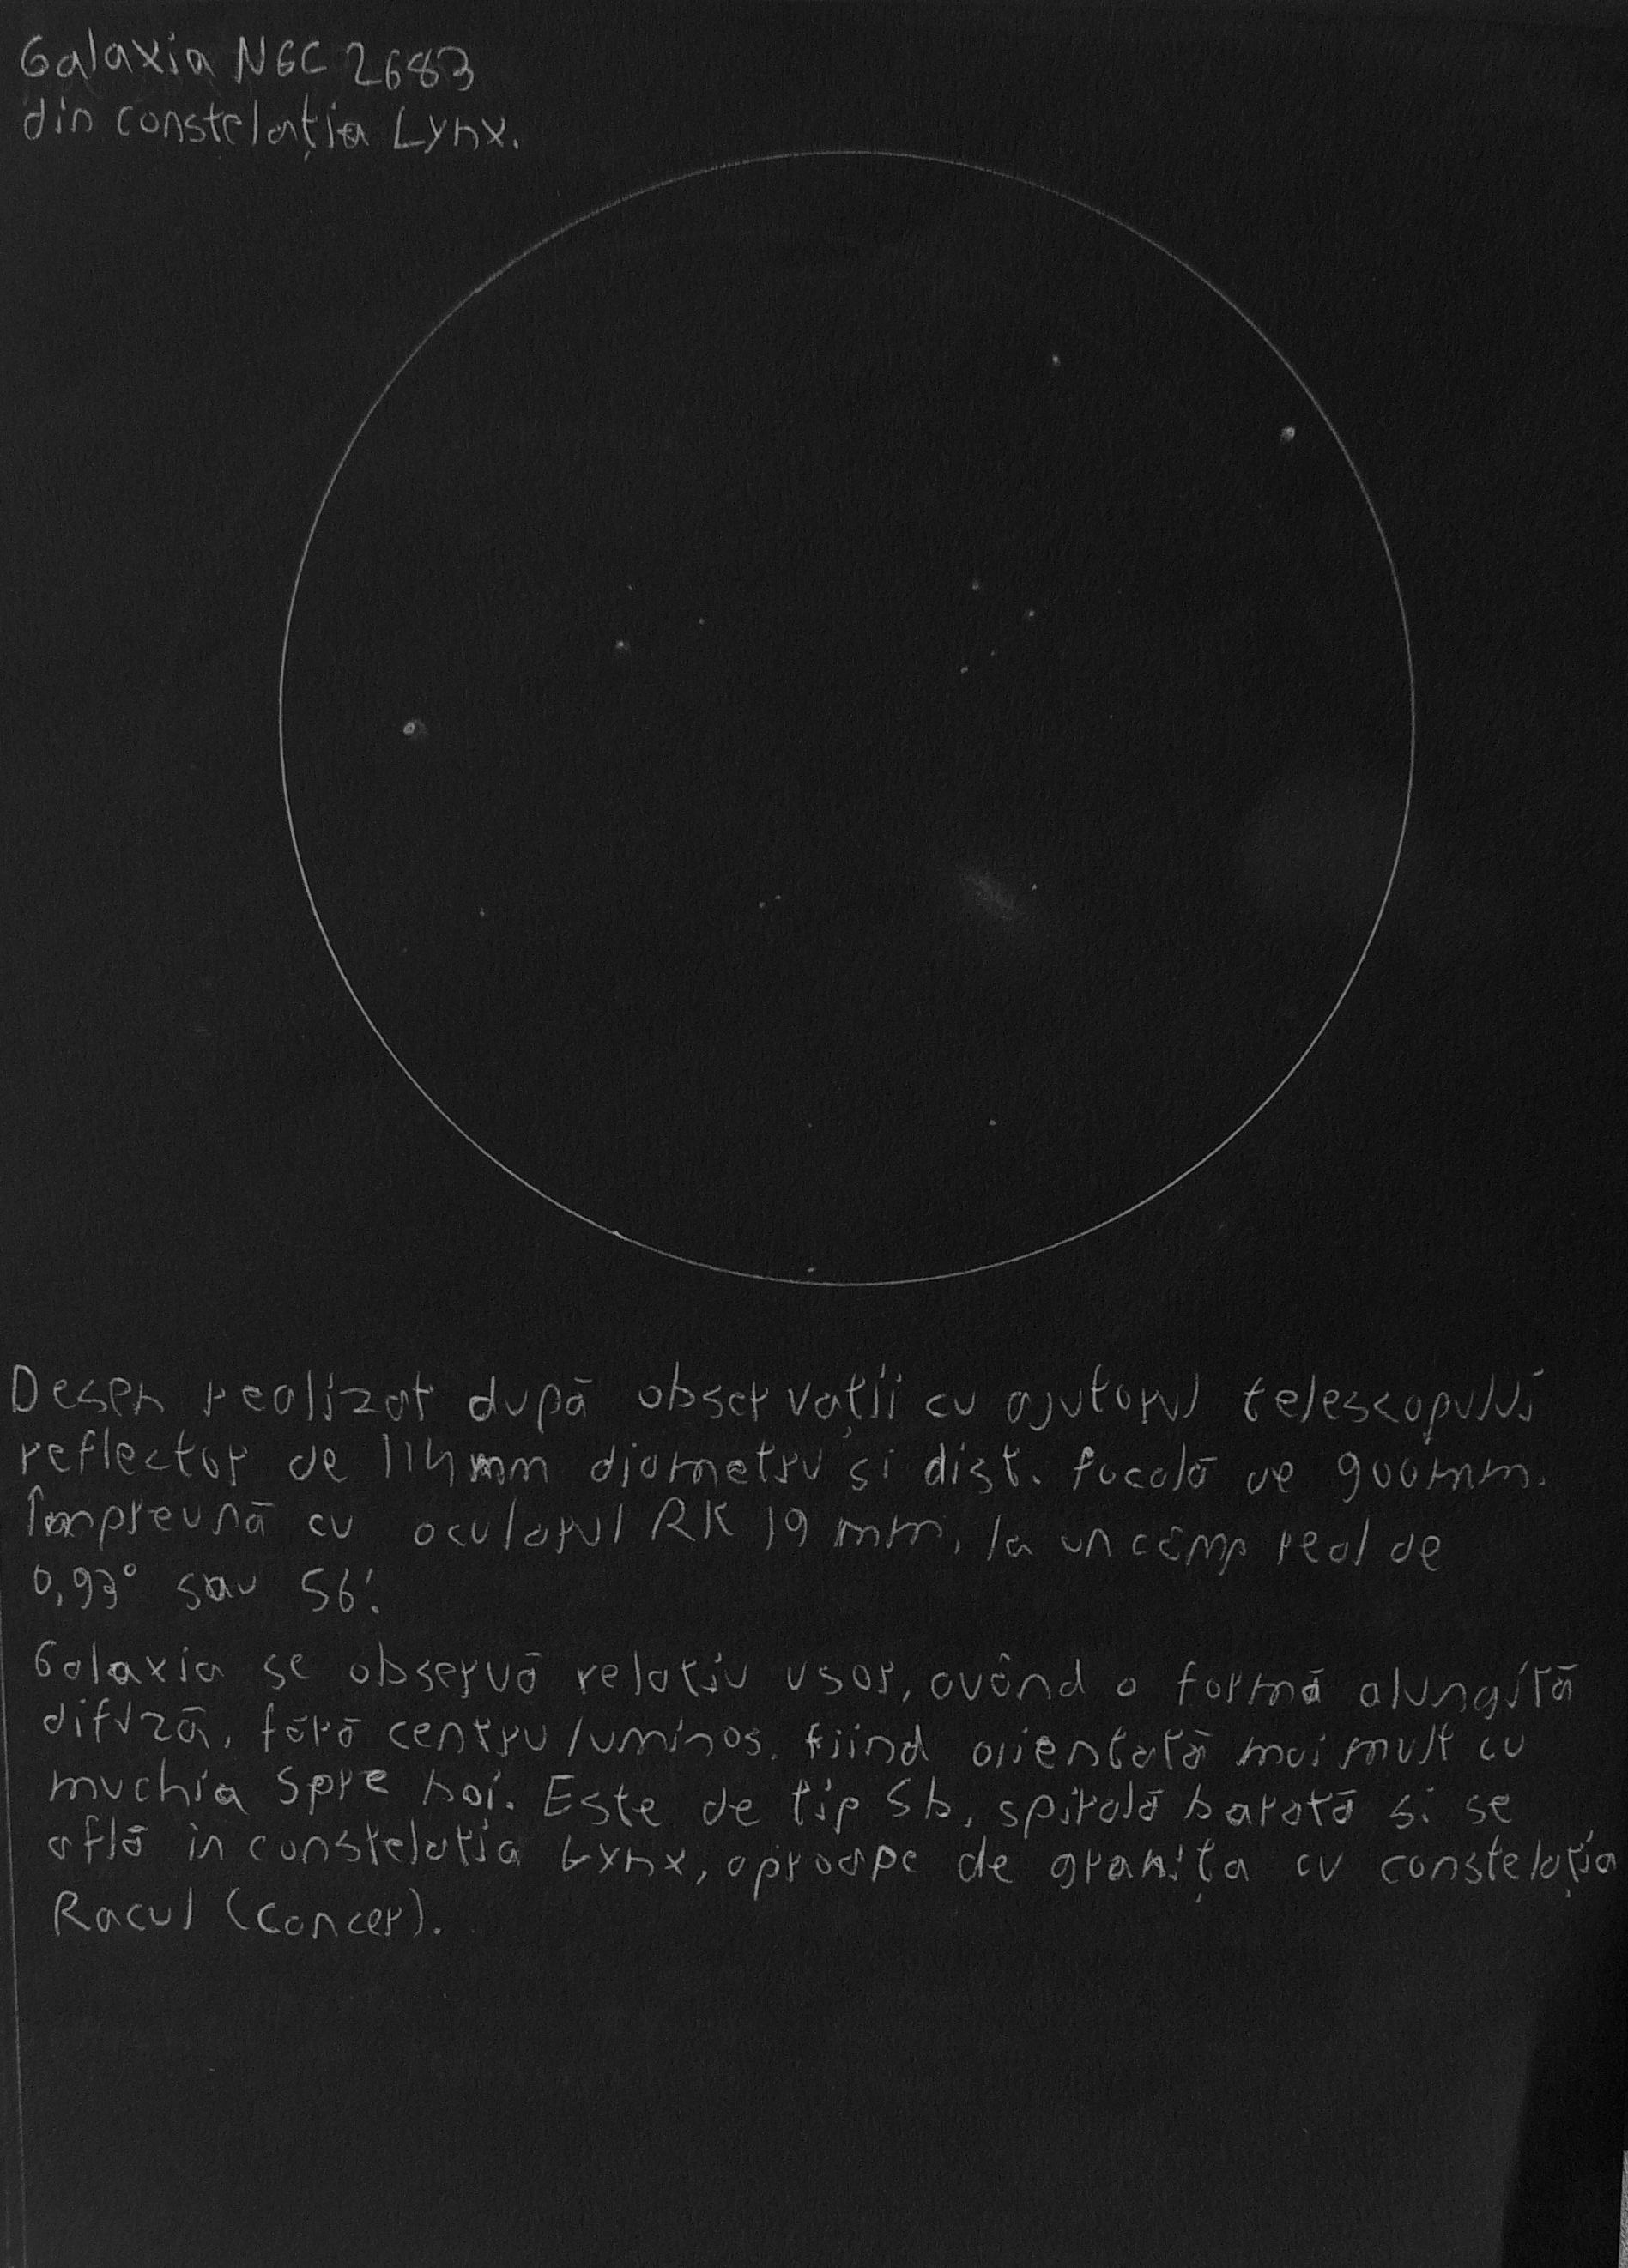 Galaxia NGC 2683
din constelația Lynx.
Desen realizat după observații cu ajutorul telescopului
reflector de 114mm diametru si dist. focală de 900mm.
Împreună cu ocularul RK 19 mm, la un câmp real de
0,93° sau 56'.
Galaxia se observă relativ usor, având o formă alungită
difuză, fără centru luminos. fiind orientată mai mult cu
muchia spre noi. Este de tip Sb, spirală barată si se
află in constelatia Lynx, aproape de granița cu constelația
Racul (Cancer).